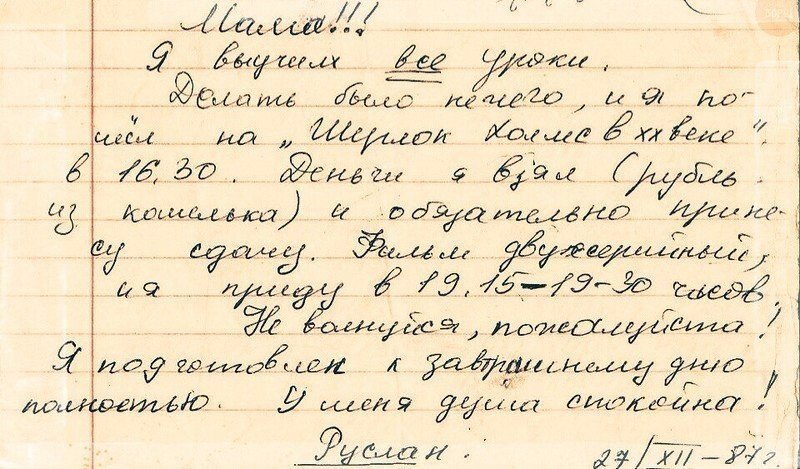 Мама!!!
Я выучил все уроки.
Делать было нечего, и я по-
шёл на „Шерлок Холмс в XX веке"
в 16.30. Деньги я взял (рубль
из кошелька) и обязательно прине-
су сдачу. Фильм двухсерийный,
и я приду в 19.15-19-30 часов.
Не волнуйся, пожалуйста!
Я подготовлен к завтрашнему дню
полностью. У меня душа спокойна!
Руслан. 27/XII-87г.